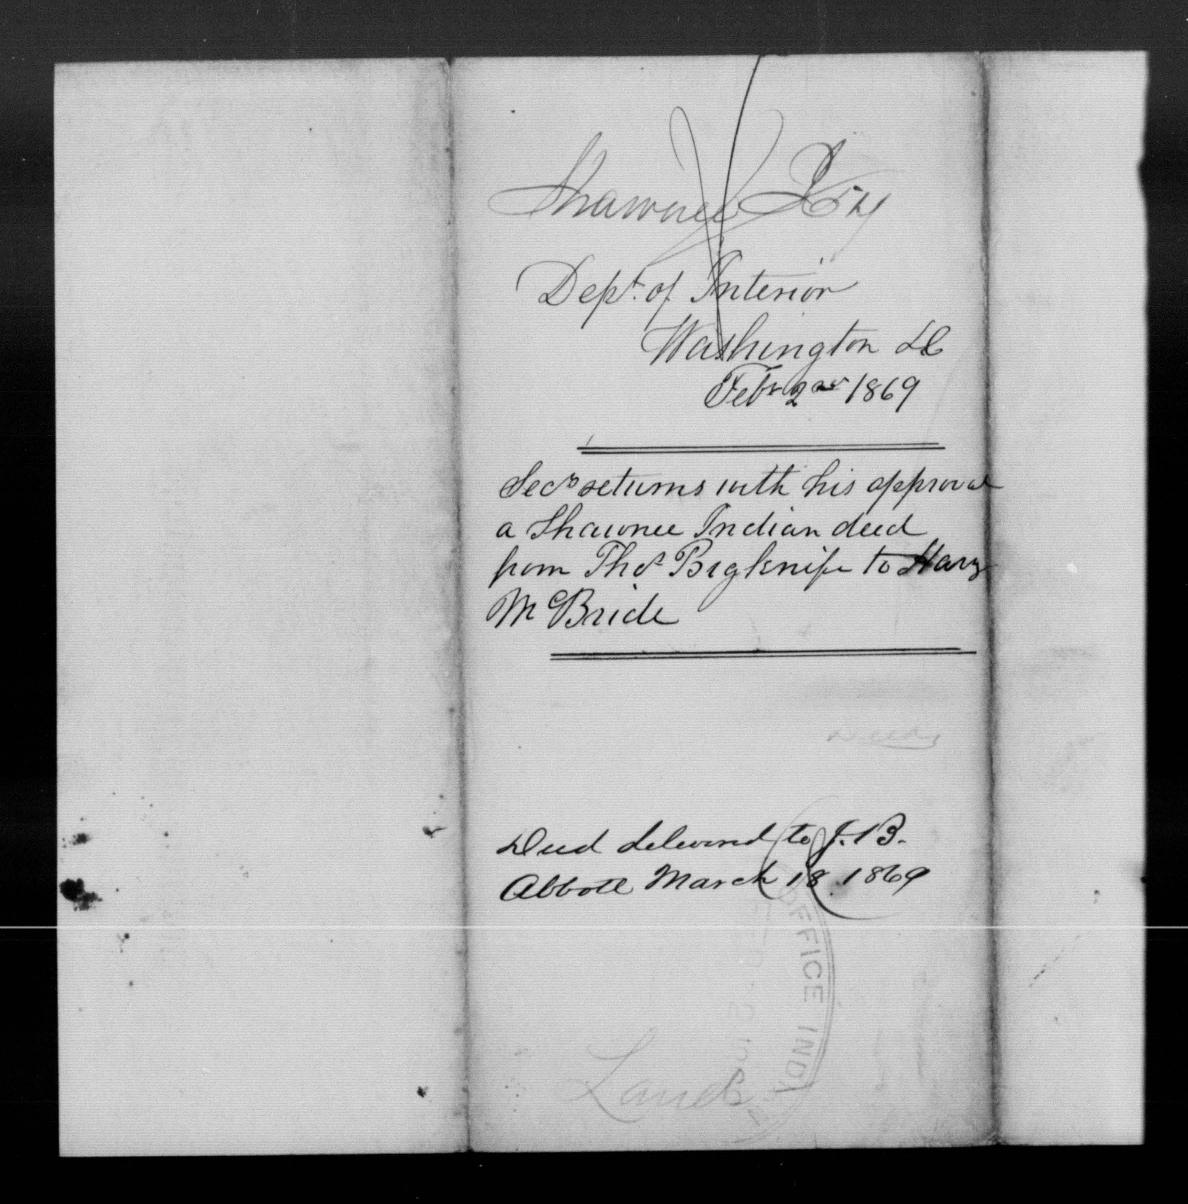 Shawnee I 514
Dept. of Interior
Washington DC
Feby 2nd 1869
Secy returns with his approval
a Shawnee Indian deed
from Thos Bigknife to Mary
McBride
Deeds
Deed delivered to J. B.
Abbott March 18. 1869
OFFICE INDI
Land